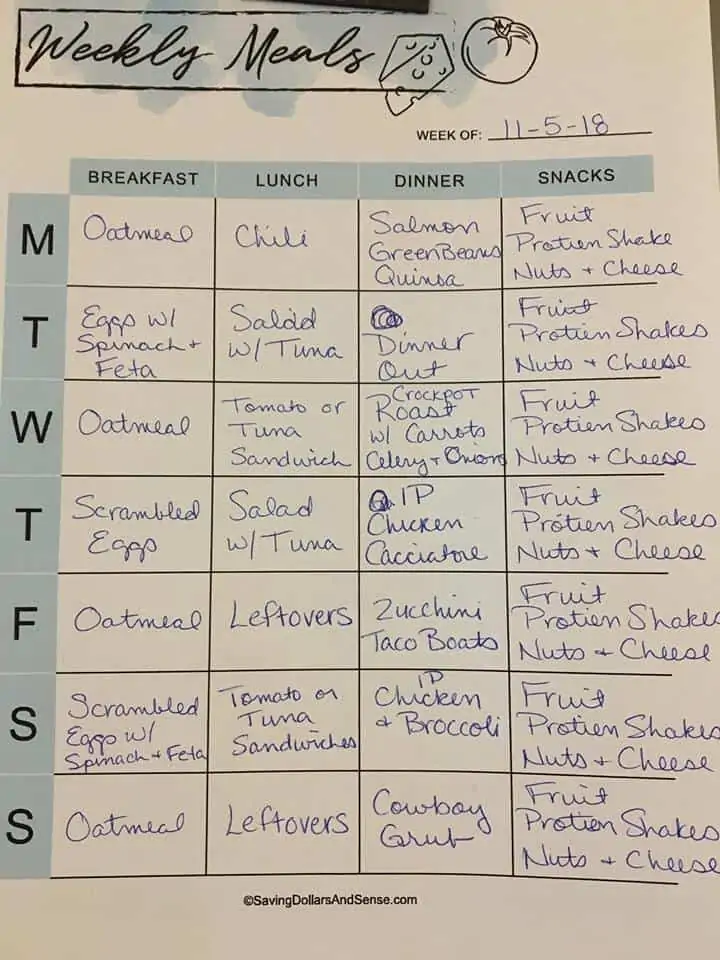 Weekly Meals
WEEK OF: 11-5-18
BREAKFAST LUNCH DINNER SNACKS
M
Oatmeal
Chili
Salmon
Green Beans
Quinoa
Fruit
Protien Shake
Nuts + Cheese
T
Eggs w/
Spinach +
Feta
Salad
w/ Tuna
Dinner
Out
Fruit
Protien Shakes
Nuts + Cheese
W
Oatmeal
Tomato or
Tuna
Sandwich
Crockpot
Roast
w/ Carrots
Celery + Onions
Fruit
Protien Shakes
Nuts + Cheese
T
Scrambled
Eggs
Salad
w/ Tuna
IP
Chicken
Cacciatore
Fruit
Protien Shakes
Nuts + Cheese
F
Oatmeal
Leftovers
Zucchini
Taco Boats
Fruit
Protien Shakes
Nuts + Cheese
S
Scrambled
Eggs w/
Spinach + Feta
Tomato or
Tuna
Sandwiches
IP
Chicken
+ Broccoli
Fruit
Protien Shakes
Nuts + Cheese
S
Oatmeal
Leftovers
Cowboy
Grub
Fruit
Protien Shakes
Nuts + Cheese
©SavingDollarsAndSense.com